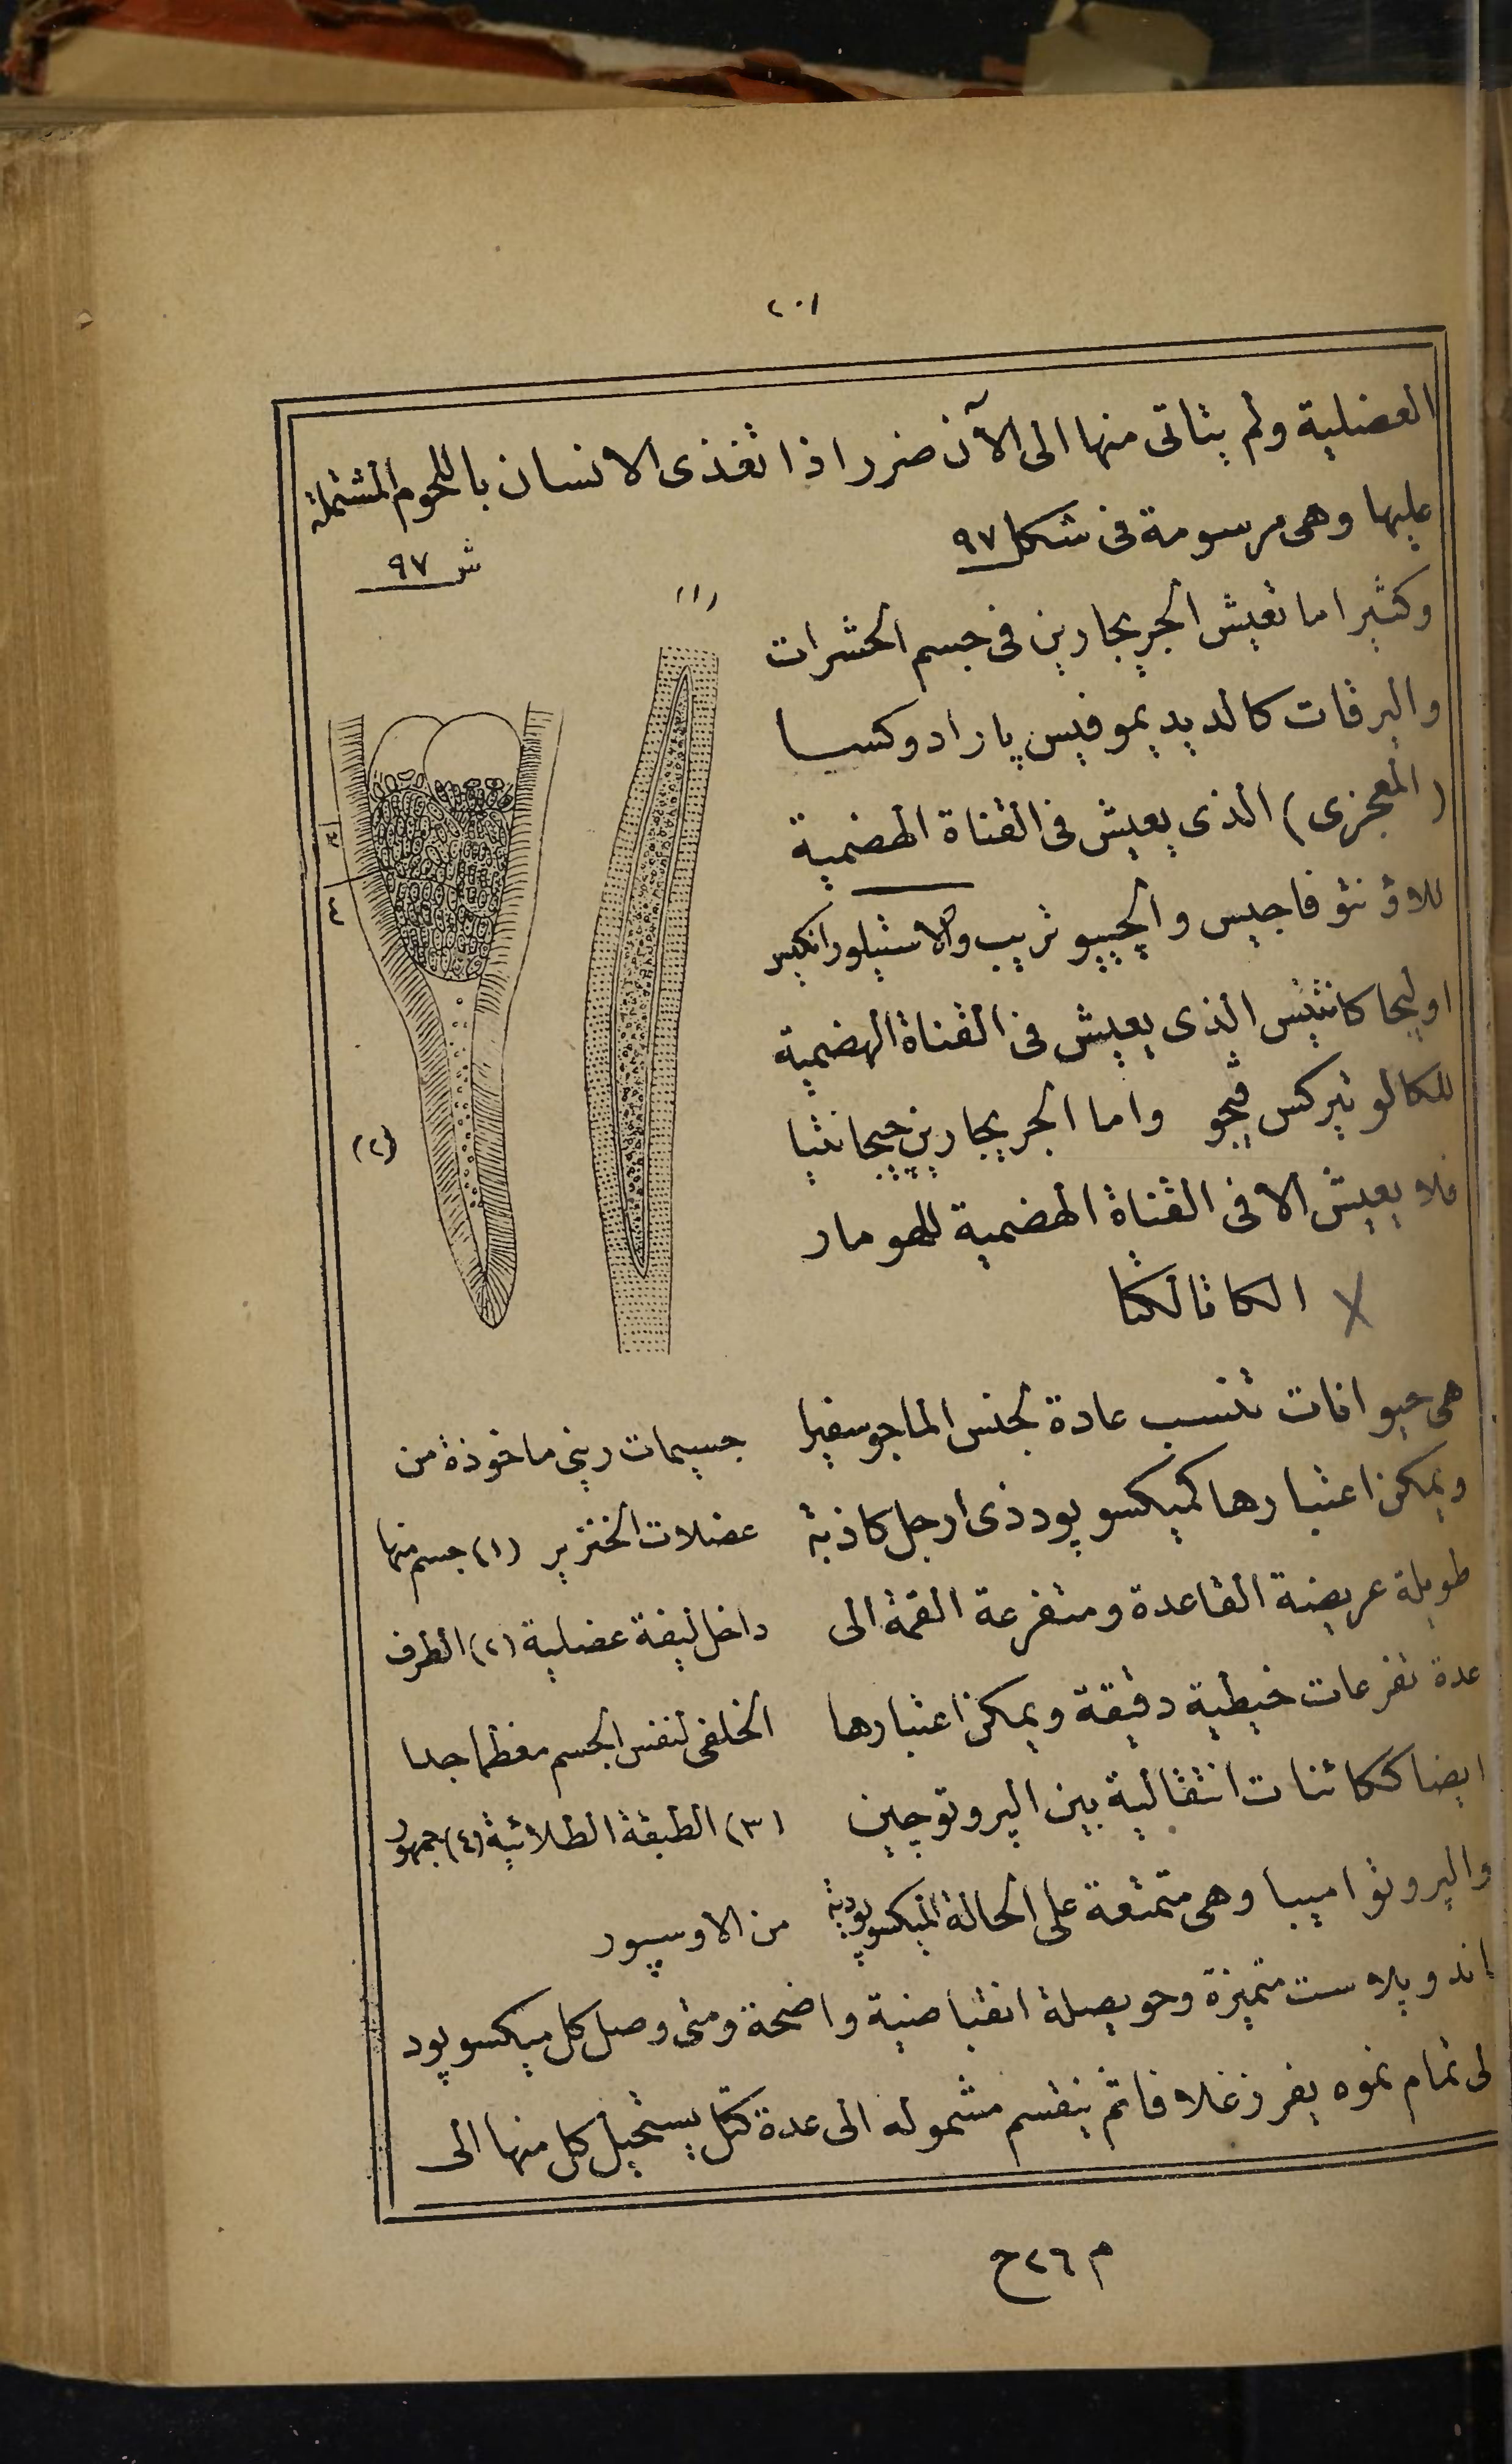 ٢٠١
العضلية ولم يتاتى منها الى الآن ضرر اذا تغذى الانسان باللحوم المشتملة
عليها وهى مرسومة فى شكل ٩٧
ش ٩٧
(١)
وكثيرا ما تعيش الجريجارين فى جسم الحشرات
واليرقات كالديديموفيس پارادوكسا
(المعجزى) الذى يعيش فى القناة الهضمية
للاونتوفاجيس والجيپوتريب والاستيلورانكيس
اوليجاكانتيس الذى يعيش فى القناة الهضمية
للكالوتيركس ڤيجو واما الجريجارين جيجانتيا
فلا يعيش الا فى القناة الهضمية للهومار
(٢)
الكاتالكتا
هى حيوانات تنسب عادة لجنس الماجوسفيرا
ويمكن اعتبارها كميكسوپود ذى ارجل كاذبة
طويلة عريضة القاعدة ومتفرعة القمة الى
عدة تفرعات خيطية دقيقة ويمكن اعتبارها
ايضا ككائنات انتقالية بين الپروتوجين
والپروتواميبا وهى متمتعة على الحالة الميكسوپودية
جسيمات رينى ماخوذة من
عضلات الخنزير (١) جسم منها
داخل ليفة عضلية (٢) الطرف
الخلفى لنفس الجسم مغطما جدا
(٣) الطبقة الطلائية (٤) جمهور
من الاوسپور
اندوپلاست متميزة وحويصلة انقباضية واضحة ومتى وصل كل ميكسوپود
لى تمام نموه يفرز غلافا ثم ينقسم مشموله الى عدة كتل يستحيل كل منها الى
م ٢٦ ح